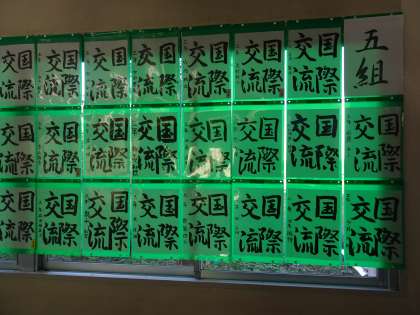 五組
国際
交流
国際
交流
国際
交流
国際
交流
国際
交流
国際
交流
国際
交流
国際
交流
国際
交流
国際
交流
国際
交流
国際
交流
国際
交流
国際
交流
国際
交流
国際
交流
国際
交流
国際
交流
国際
交流
国際
交流
国際
交流
国際
交流
国際
交流